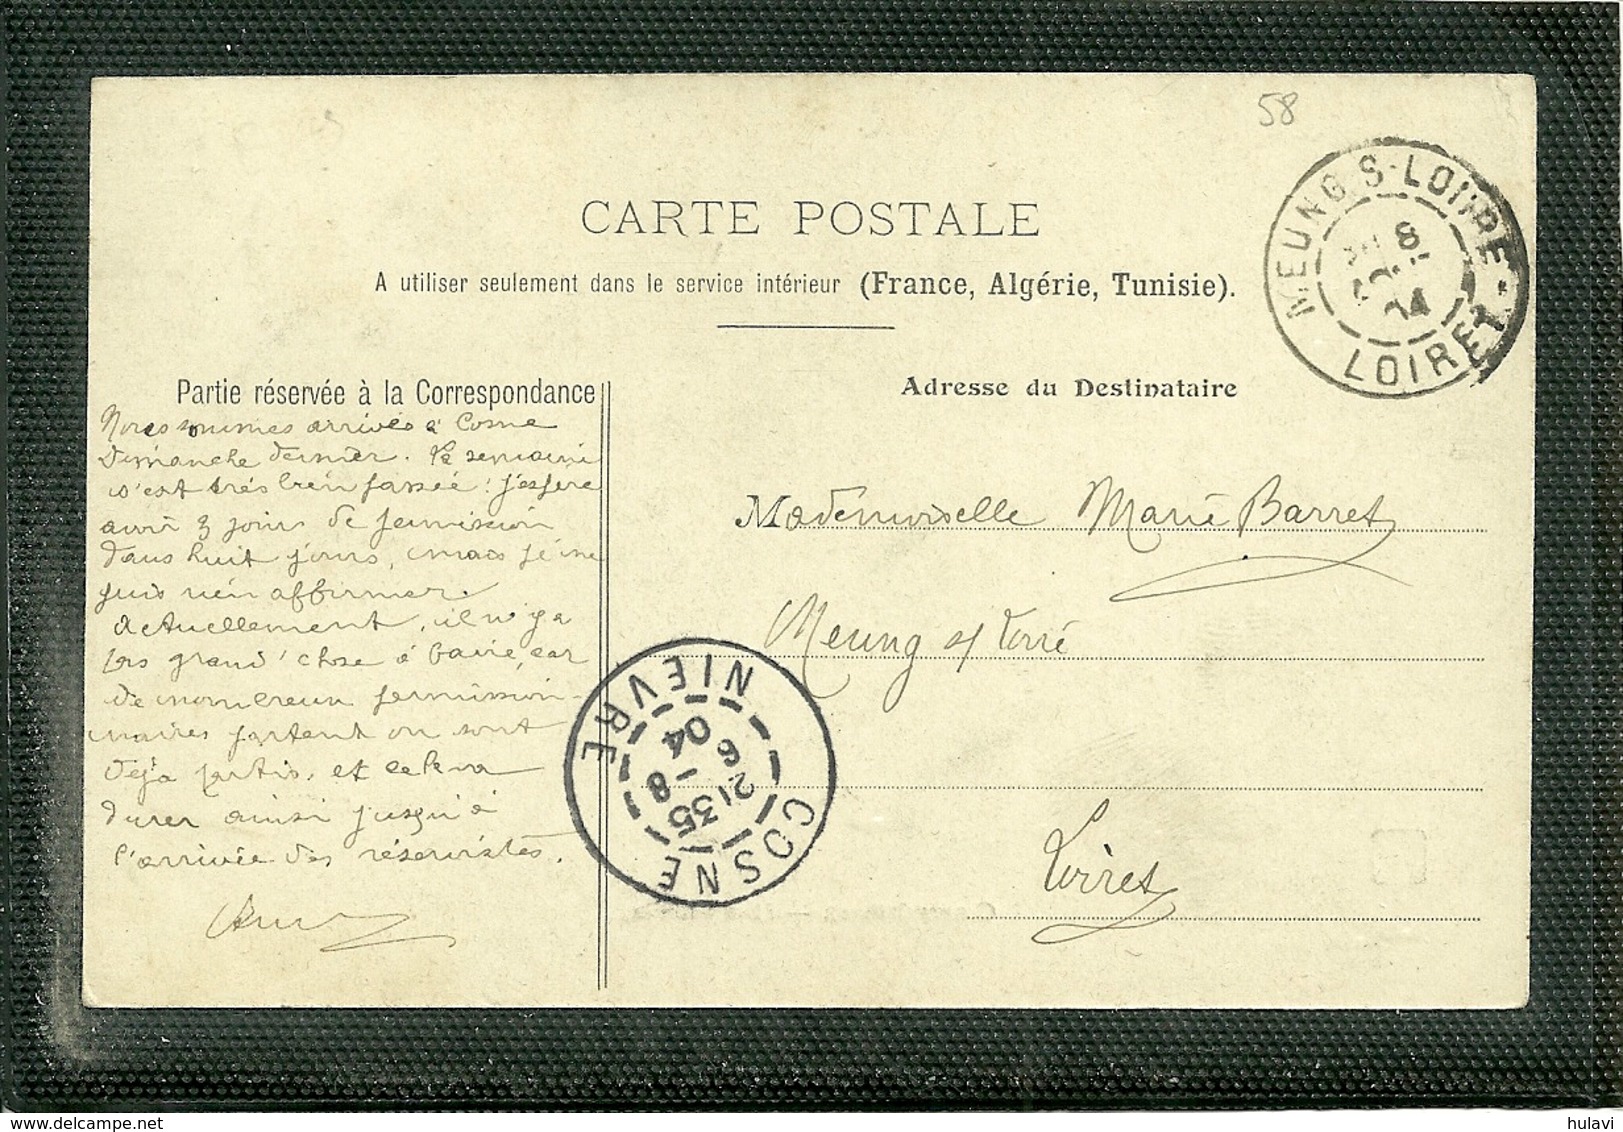 58
MEUNG S-LOIRE
8
04
LOIRET
CARTE POSTALE
A utiliser seulement dans le service intérieur (France, Algérie, Tunisie).
Partie réservée à la Correspondance
Adresse du Destinataire
Nous sommes arrivés à Cosne
Dimanche dernier. La semaine
s'est très bien passée ! j'espère
avoir 3 jours de permission
dans huit jours, mais je ne
puis rien affirmer.
Actuellement, il n'y a
pas grand'chose à faire, car
de nombreux permission-
naires partent ou sont
déjà partis, et cela va
durer ainsi jusqu'à
l'arrivée des réservistes.
Mademoiselle Marie Barret
Meung s/ Loire
Loiret
COSNE
21 35
6 - 8
04
NIEVRE
hulavi